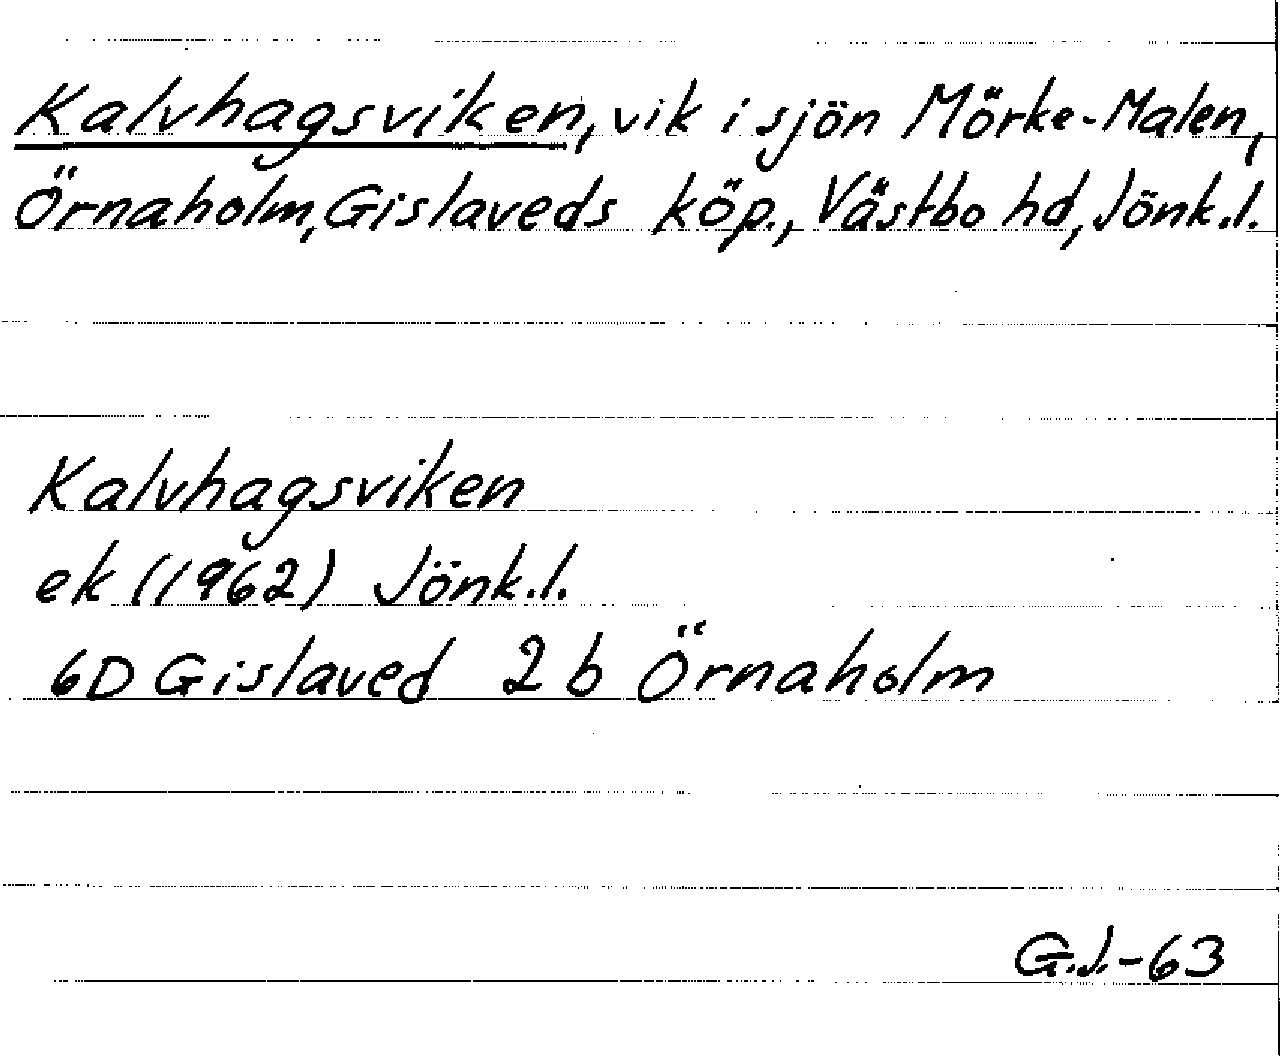 Kalvhagsviken, vik i sjön Mörke-Malen,
Örnaholm, Gislaveds köp., Västbo hd, Jönk.l.
Kalvhagsviken
ek (1962) Jönk.l.
6D Gislaved 2b Örnaholm
G.J.-63